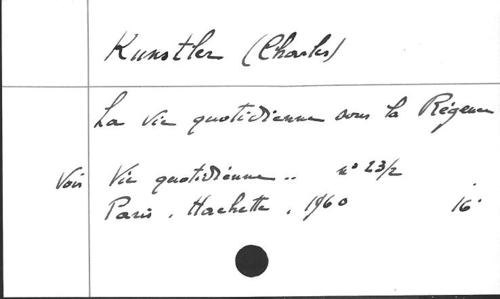 Kunstler (Charles)
La Vie quotidienne sous la Régence
Voir Vie quotidienne .. n° 23/2
Paris, Hachette, 1960 16°